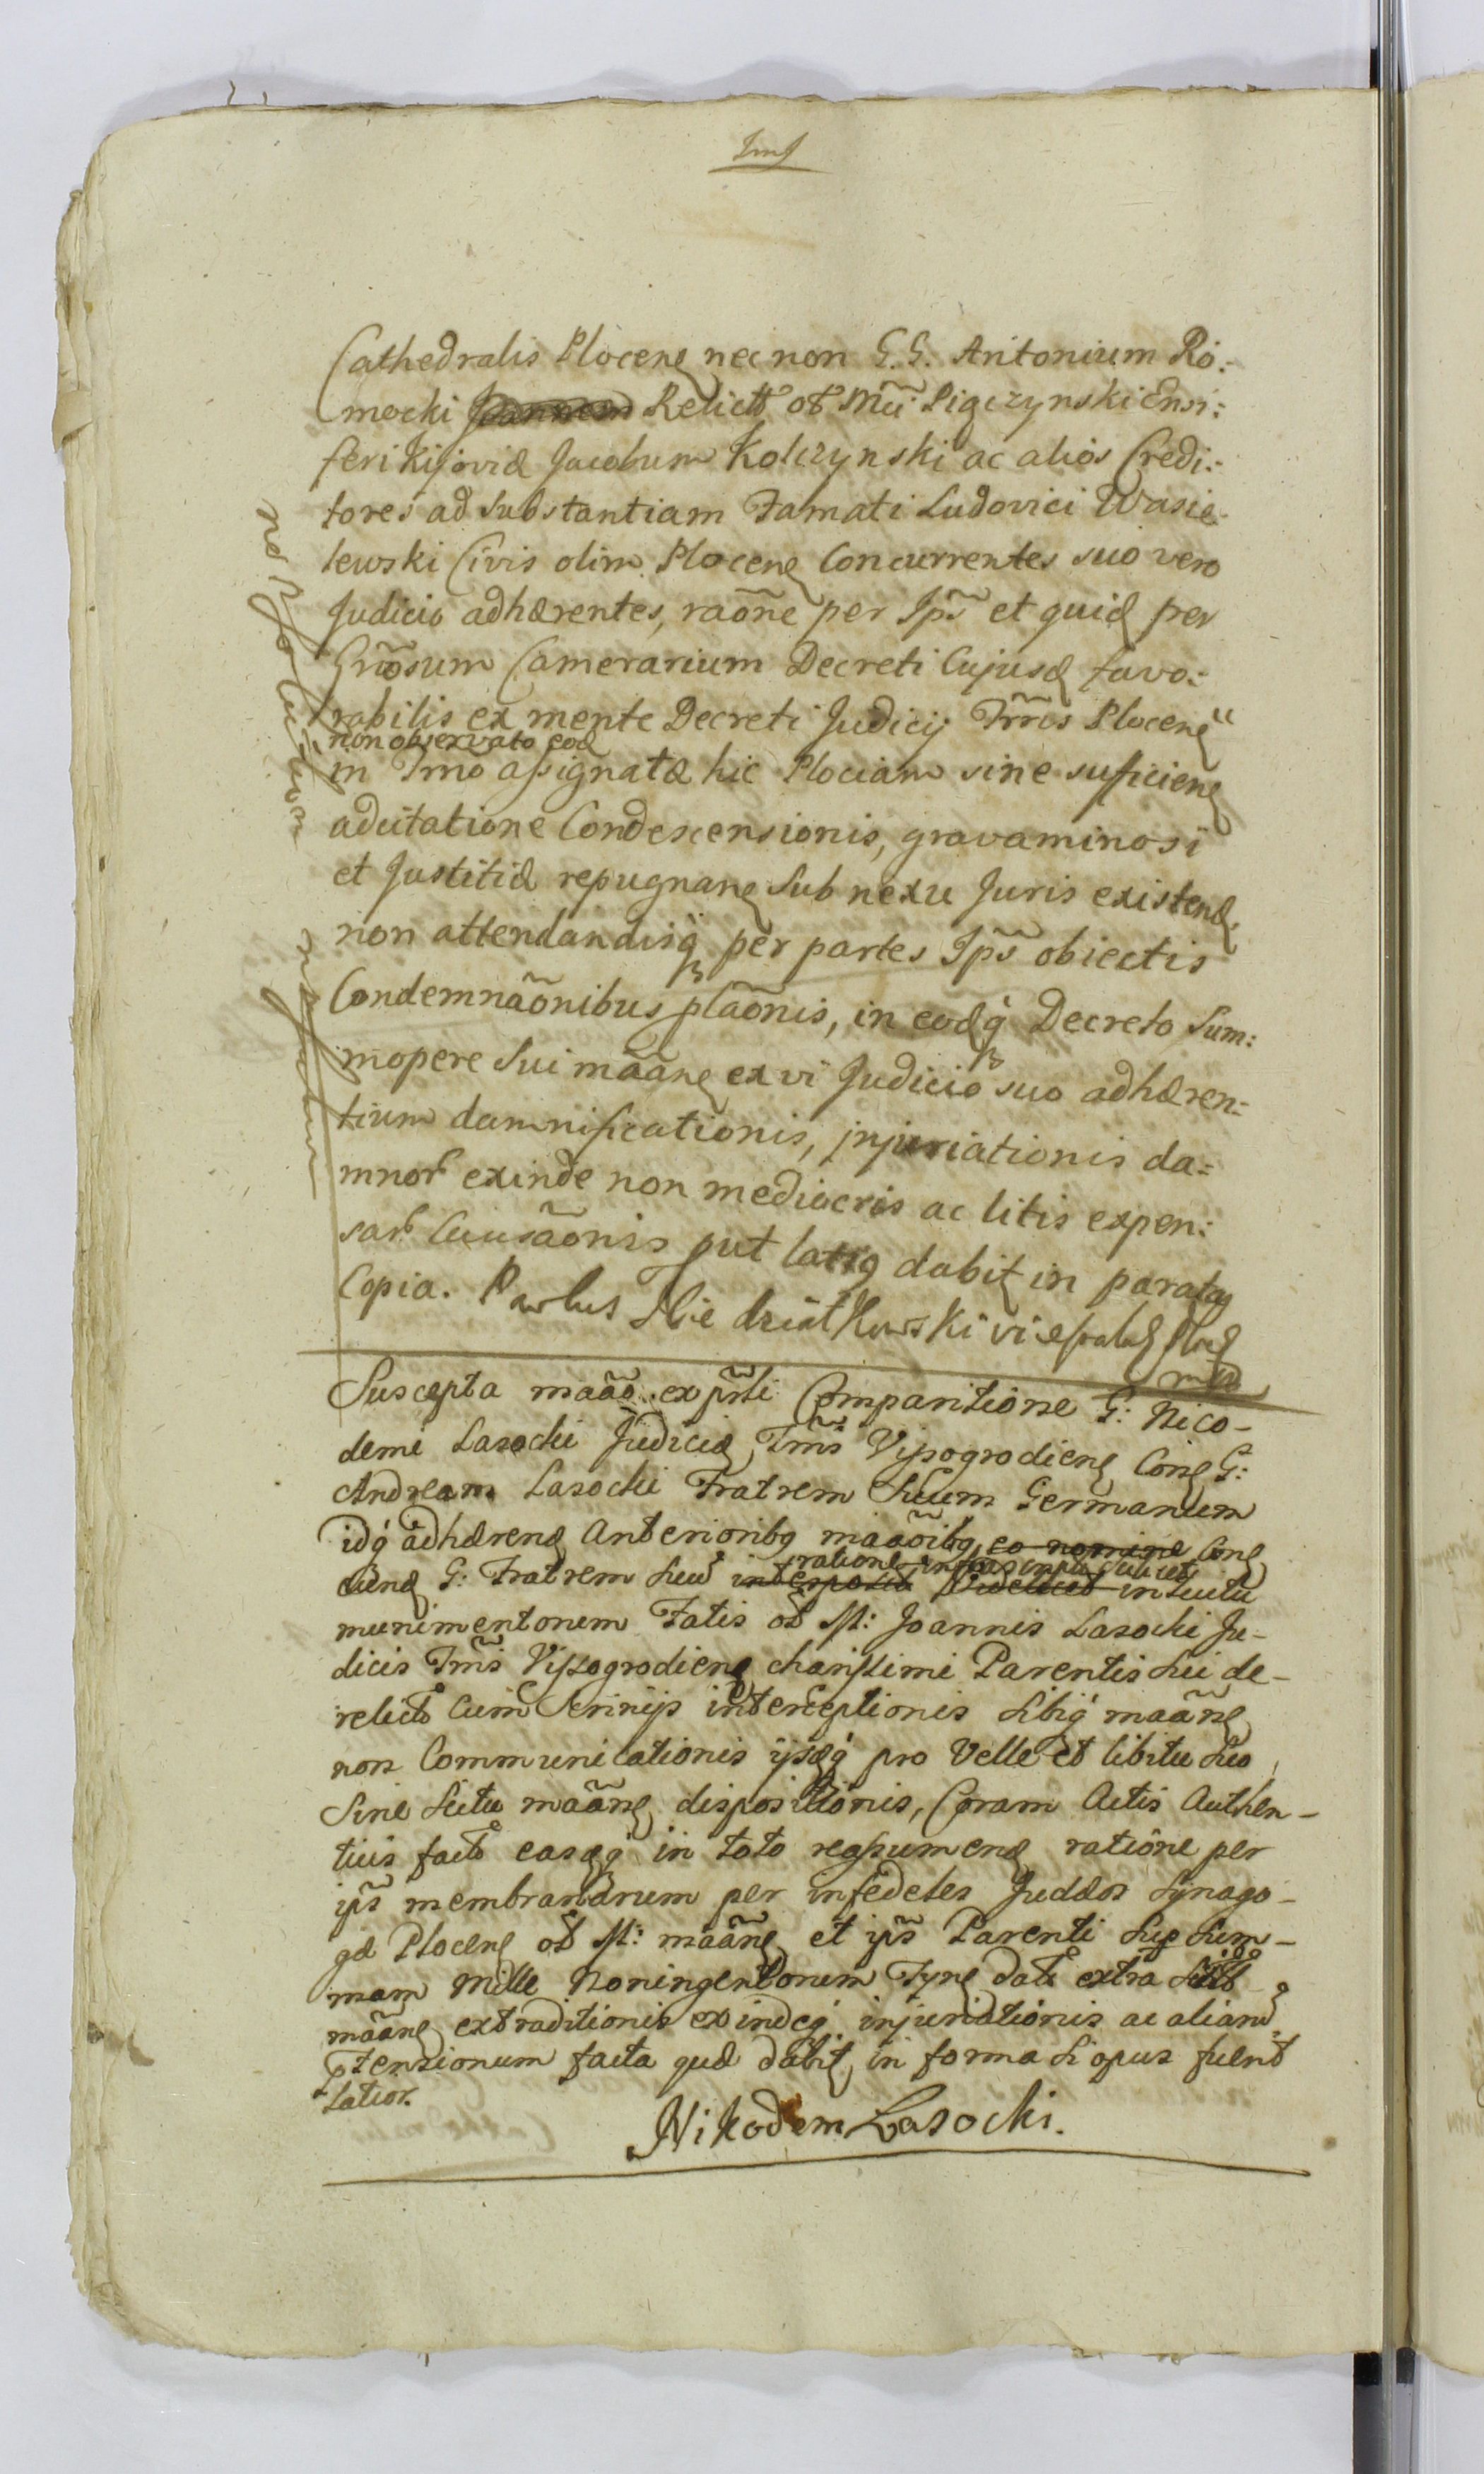 Cathedralis Plocens necnon G.G. Antonium Ro:
mocki Joannem Relict ol Mci Pigczynski Ensi:
feri Kijoviæ Jacobum Kolczynski ac alios Credi:
tores ad substantiam Famati Ludovici Wasie
lewski Civis olim Plocens Concurrentes suo vero
Judicio adhærentes, raõne per Ips et quid per
Gnõsum Camerarium Decreti Cujusd favo:
rabilis ex mente Decreti Judicij Trris Plocens
non observato eod
in Tmo assignatæ hic Plociam sine suficiens
adcitatione Condescensionis, gravaminosi
et Justitiæ repugnans sub nexu Juris existend
non attendandisq per partes Ips obiectis
Condemnaõnibus plaõnis, in eodq Decreto Sum:
mopere Sui maãns ex vi Judicio suo adhæren:
tium damnificationis, injuriationis da=
mnor exinde non mediocris ac litis expen:
sar Causaõnis put latiq dabit in parata
Copia. Paulus Niedziałkowski
Suscepta maão ex pñti Comparitione G: Nico-
demi Lasocki Judicis Trris Vissogrodiens Cons G:
Andream Lasocki Fratrem Suum Germanum
idq adhærend anterioribq maãoibq eo nomine Cons
G: Fratrem suu interposit Videlicet intuitu
munimentorum Fatis ol M: Joannis Lasocki Ju-
dicis Trris Vissogrodiens charissimi Parentis sui de-
relict Cum Scrinijs interceptionis sibiq maãns
non Communicationis ijsdq pro Velle et libitu suo
Sine scitu maãns dispositionis, Coram Actis Authen-
ticis fact easdq in toto reassumend ratione per
ips membranarum per infideles Judæos Synago-
gæ Plocens ol M: maãns et ips Parenti suo Sum-
mam Mille Noningentorum Tyns dat extra
maãns extraditionis exindeq injuriationis ac aliaru
ptensionum facta quæ dabit in forma si opus fuerit
latior.
Nikodem Lasocki.